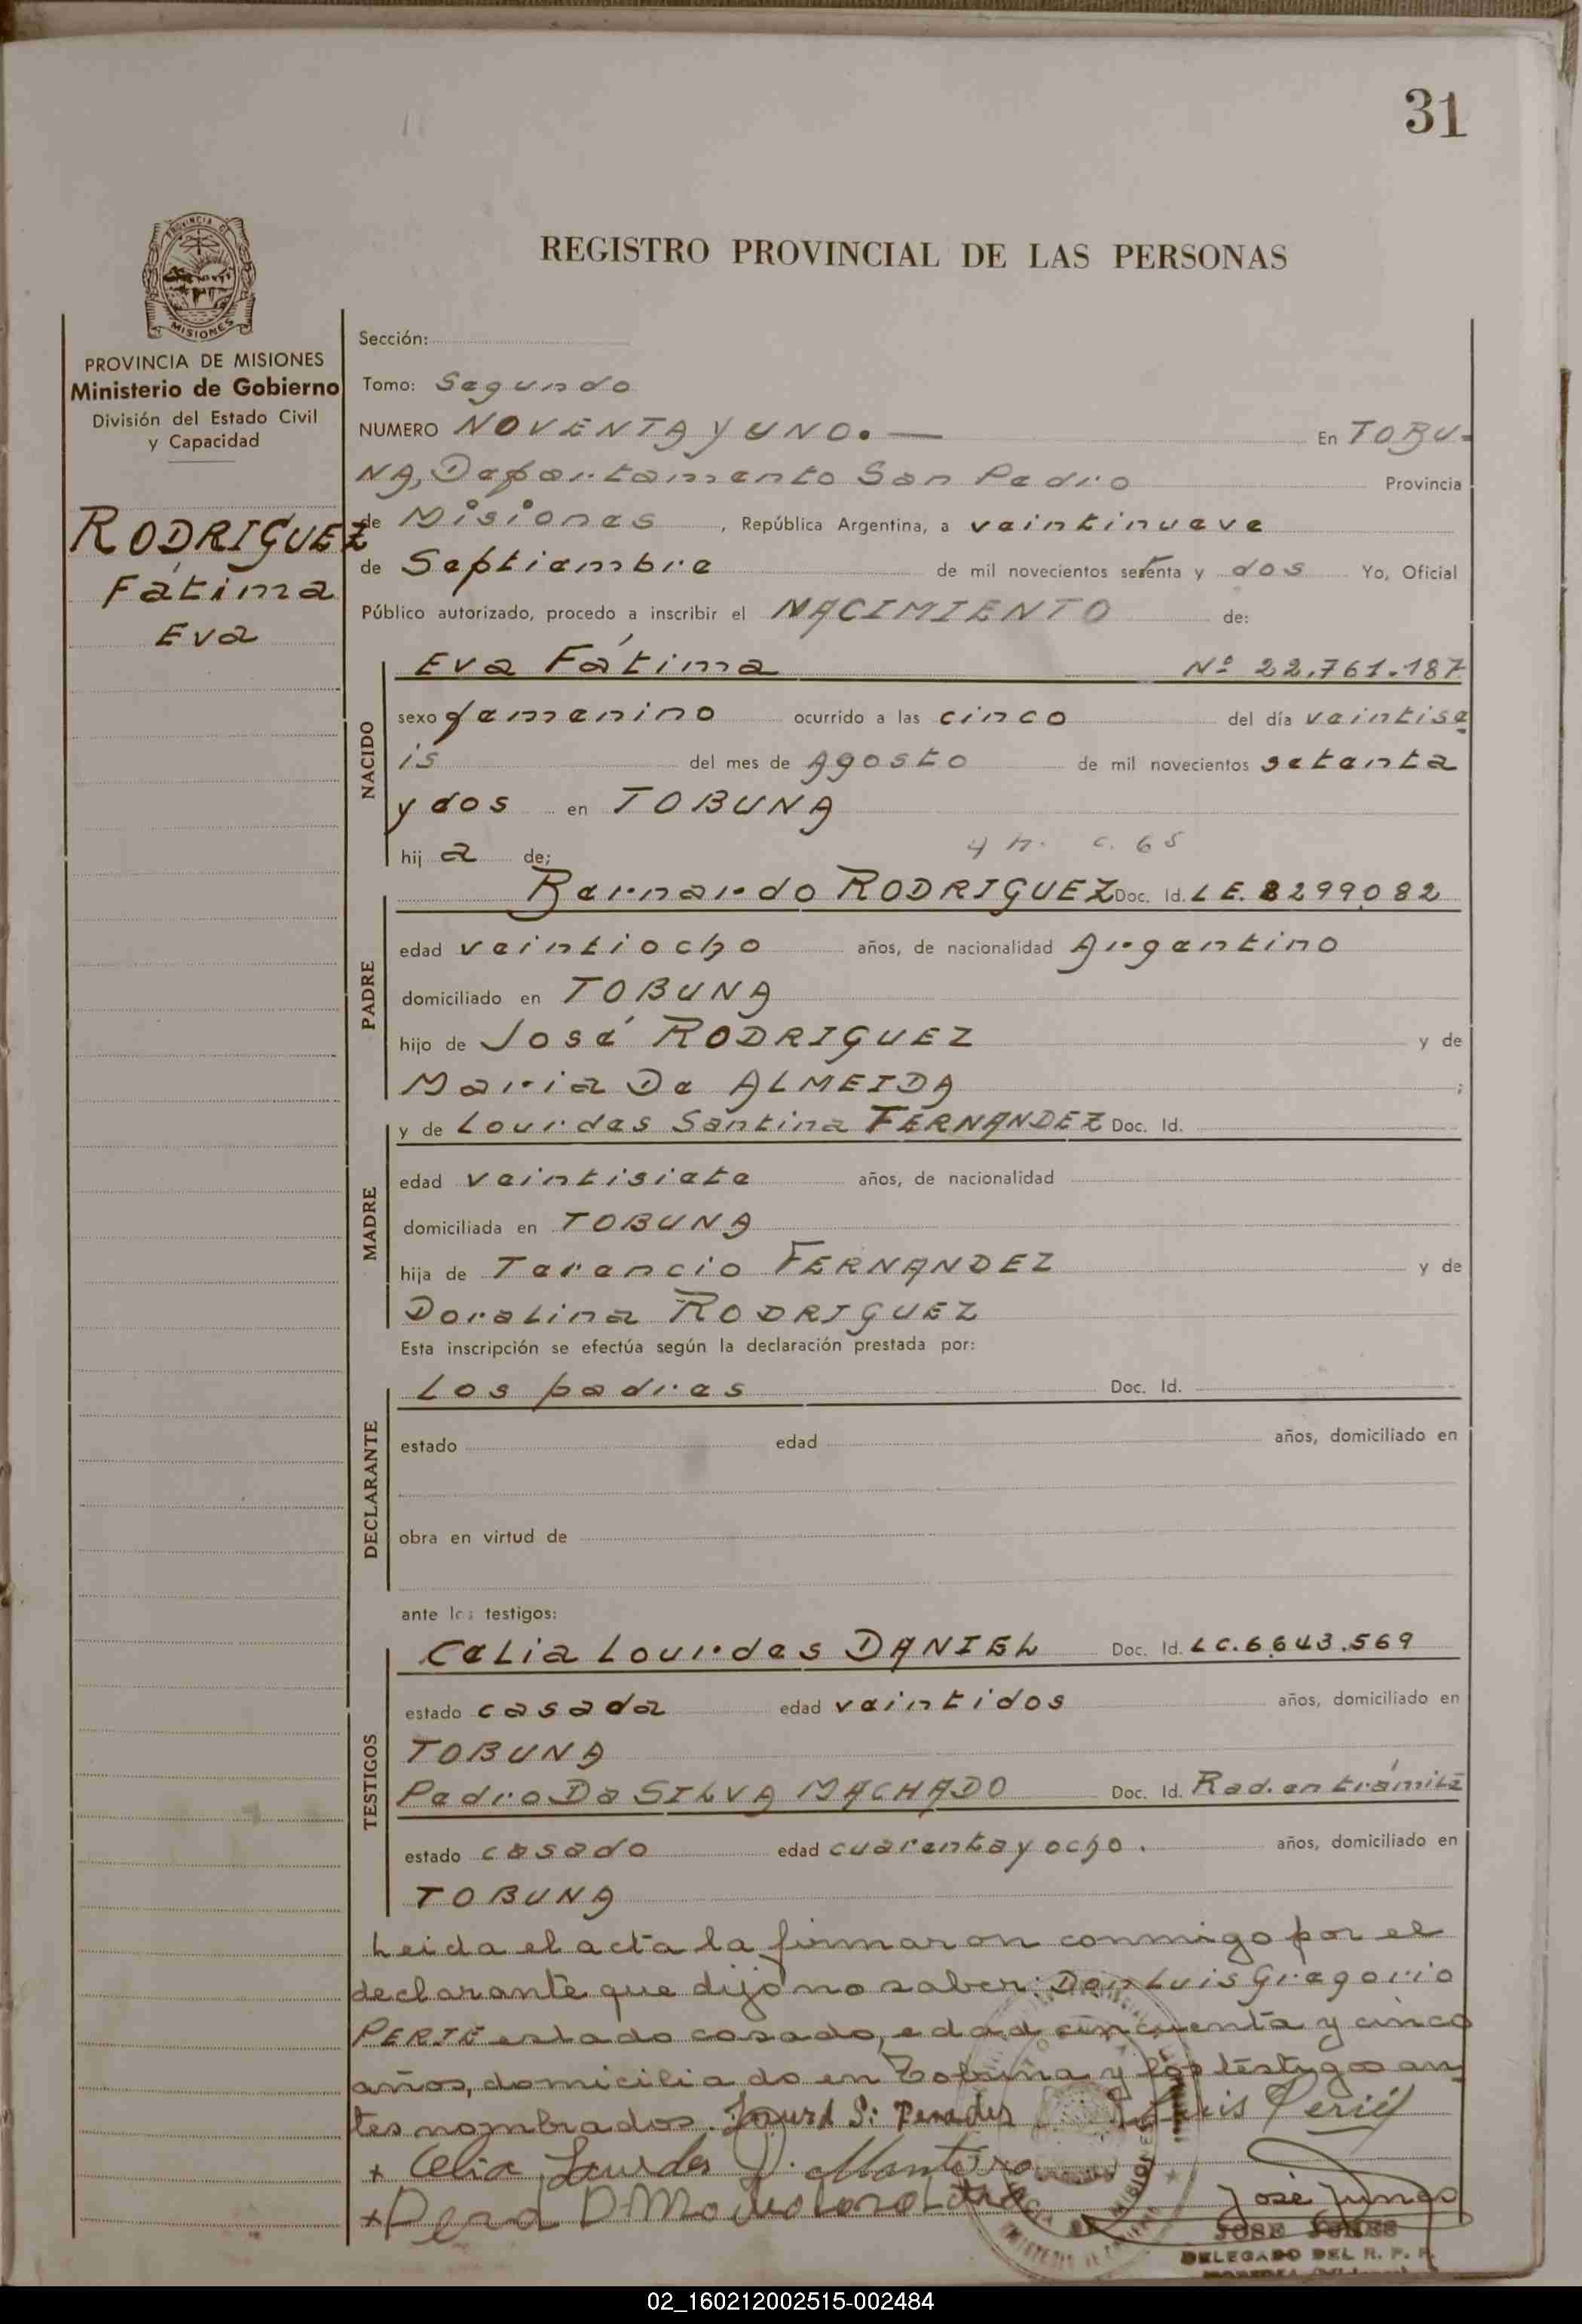 31
REGISTRO PROVINCIAL DE LAS PERSONAS
PROVINCIA DE
MISIONES
PROVINCIA DE MISIONES
Ministerio de Gobierno
División del Estado Civil
y Capacidad
RODRIGUEZ
Fátima
Eva
Sección:
Tomo: Segundo
NUMERO NOVENTA Y UNO.— En TOBU-
NA, Departamento San Pedro Provincia
de Misiones, República Argentina, a veintinueve
de Septiembre de mil novecientos setenta y dos Yo, Oficial
Público autorizado, procedo a inscribir el NACIMIENTO de:
NACIDO
Eva Fátima Nº 22.761.187
sexo femenino ocurrido a las cinco del día veintise
is del mes de Agosto de mil novecientos setenta
y dos en TOBUNA
hij a de;
PADRE
Bernardo RODRIGUEZ Doc. Id. L E. 8299082
edad veintiocho años, de nacionalidad Argentino
domiciliado en TOBUNA
hijo de José RODRIGUEZ y de
Maria De ALMEIDA ;
MADRE
y de Lourdes Santina FERNANDEZ Doc. Id.
edad veintisiete años, de nacionalidad
domiciliada en TOBUNA
hija de Terencio FERNANDEZ y de
Doralina RODRIGUEZ
Esta inscripción se efectúa según la declaración prestada por:
DECLARANTE
Los padres Doc. Id.
estado edad años, domiciliado en
obra en virtud de
ante los testigos:
TESTIGOS
Celia Lourdes DANIEL Doc. Id. LC. 6.643.569
estado casada edad veintidos años, domiciliado en
TOBUNA
Pedro Da SILVA MACHADO Doc. Id. Rad. en trámite
estado casado edad cuarenta y ocho. años, domiciliado en
TOBUNA
Leida el acta la firmaron conmigo por el
declarante que dijo no saber: Don Luis Gregorio
PERIE estado casado, edad cincuenta y cinco
años, domiciliado en Tobuna y los testigos an
tes nombrados. Luis Perié
Celia Lourdes D.
José Junes
JOSE JUNES
DELEGADO DEL R. P. P.
02_160212002515-002484